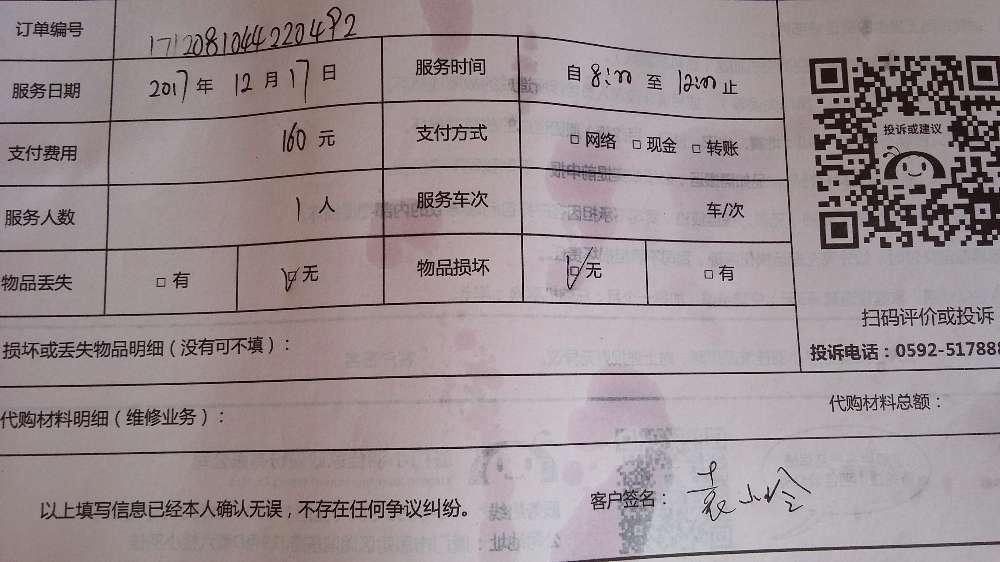 订单编号 1712081044220482
服务日期 2017年 12月17日 服务时间 自 8:00 至 12:00 止
支付费用 160 元 支付方式 □网络 □现金 □转账
投诉或建议
服务人数 1 人 服务车次 车/次
物品丢失 □有 ☑无 物品损坏 ☑无 □有
扫码评价或投诉
损坏或丢失物品明细（没有可不填）：
投诉电话：0592-517888
代购材料明细（维修业务）： 代购材料总额：
以上填写信息已经本人确认无误，不存在任何争议纠纷。 客户签名：袁小玲